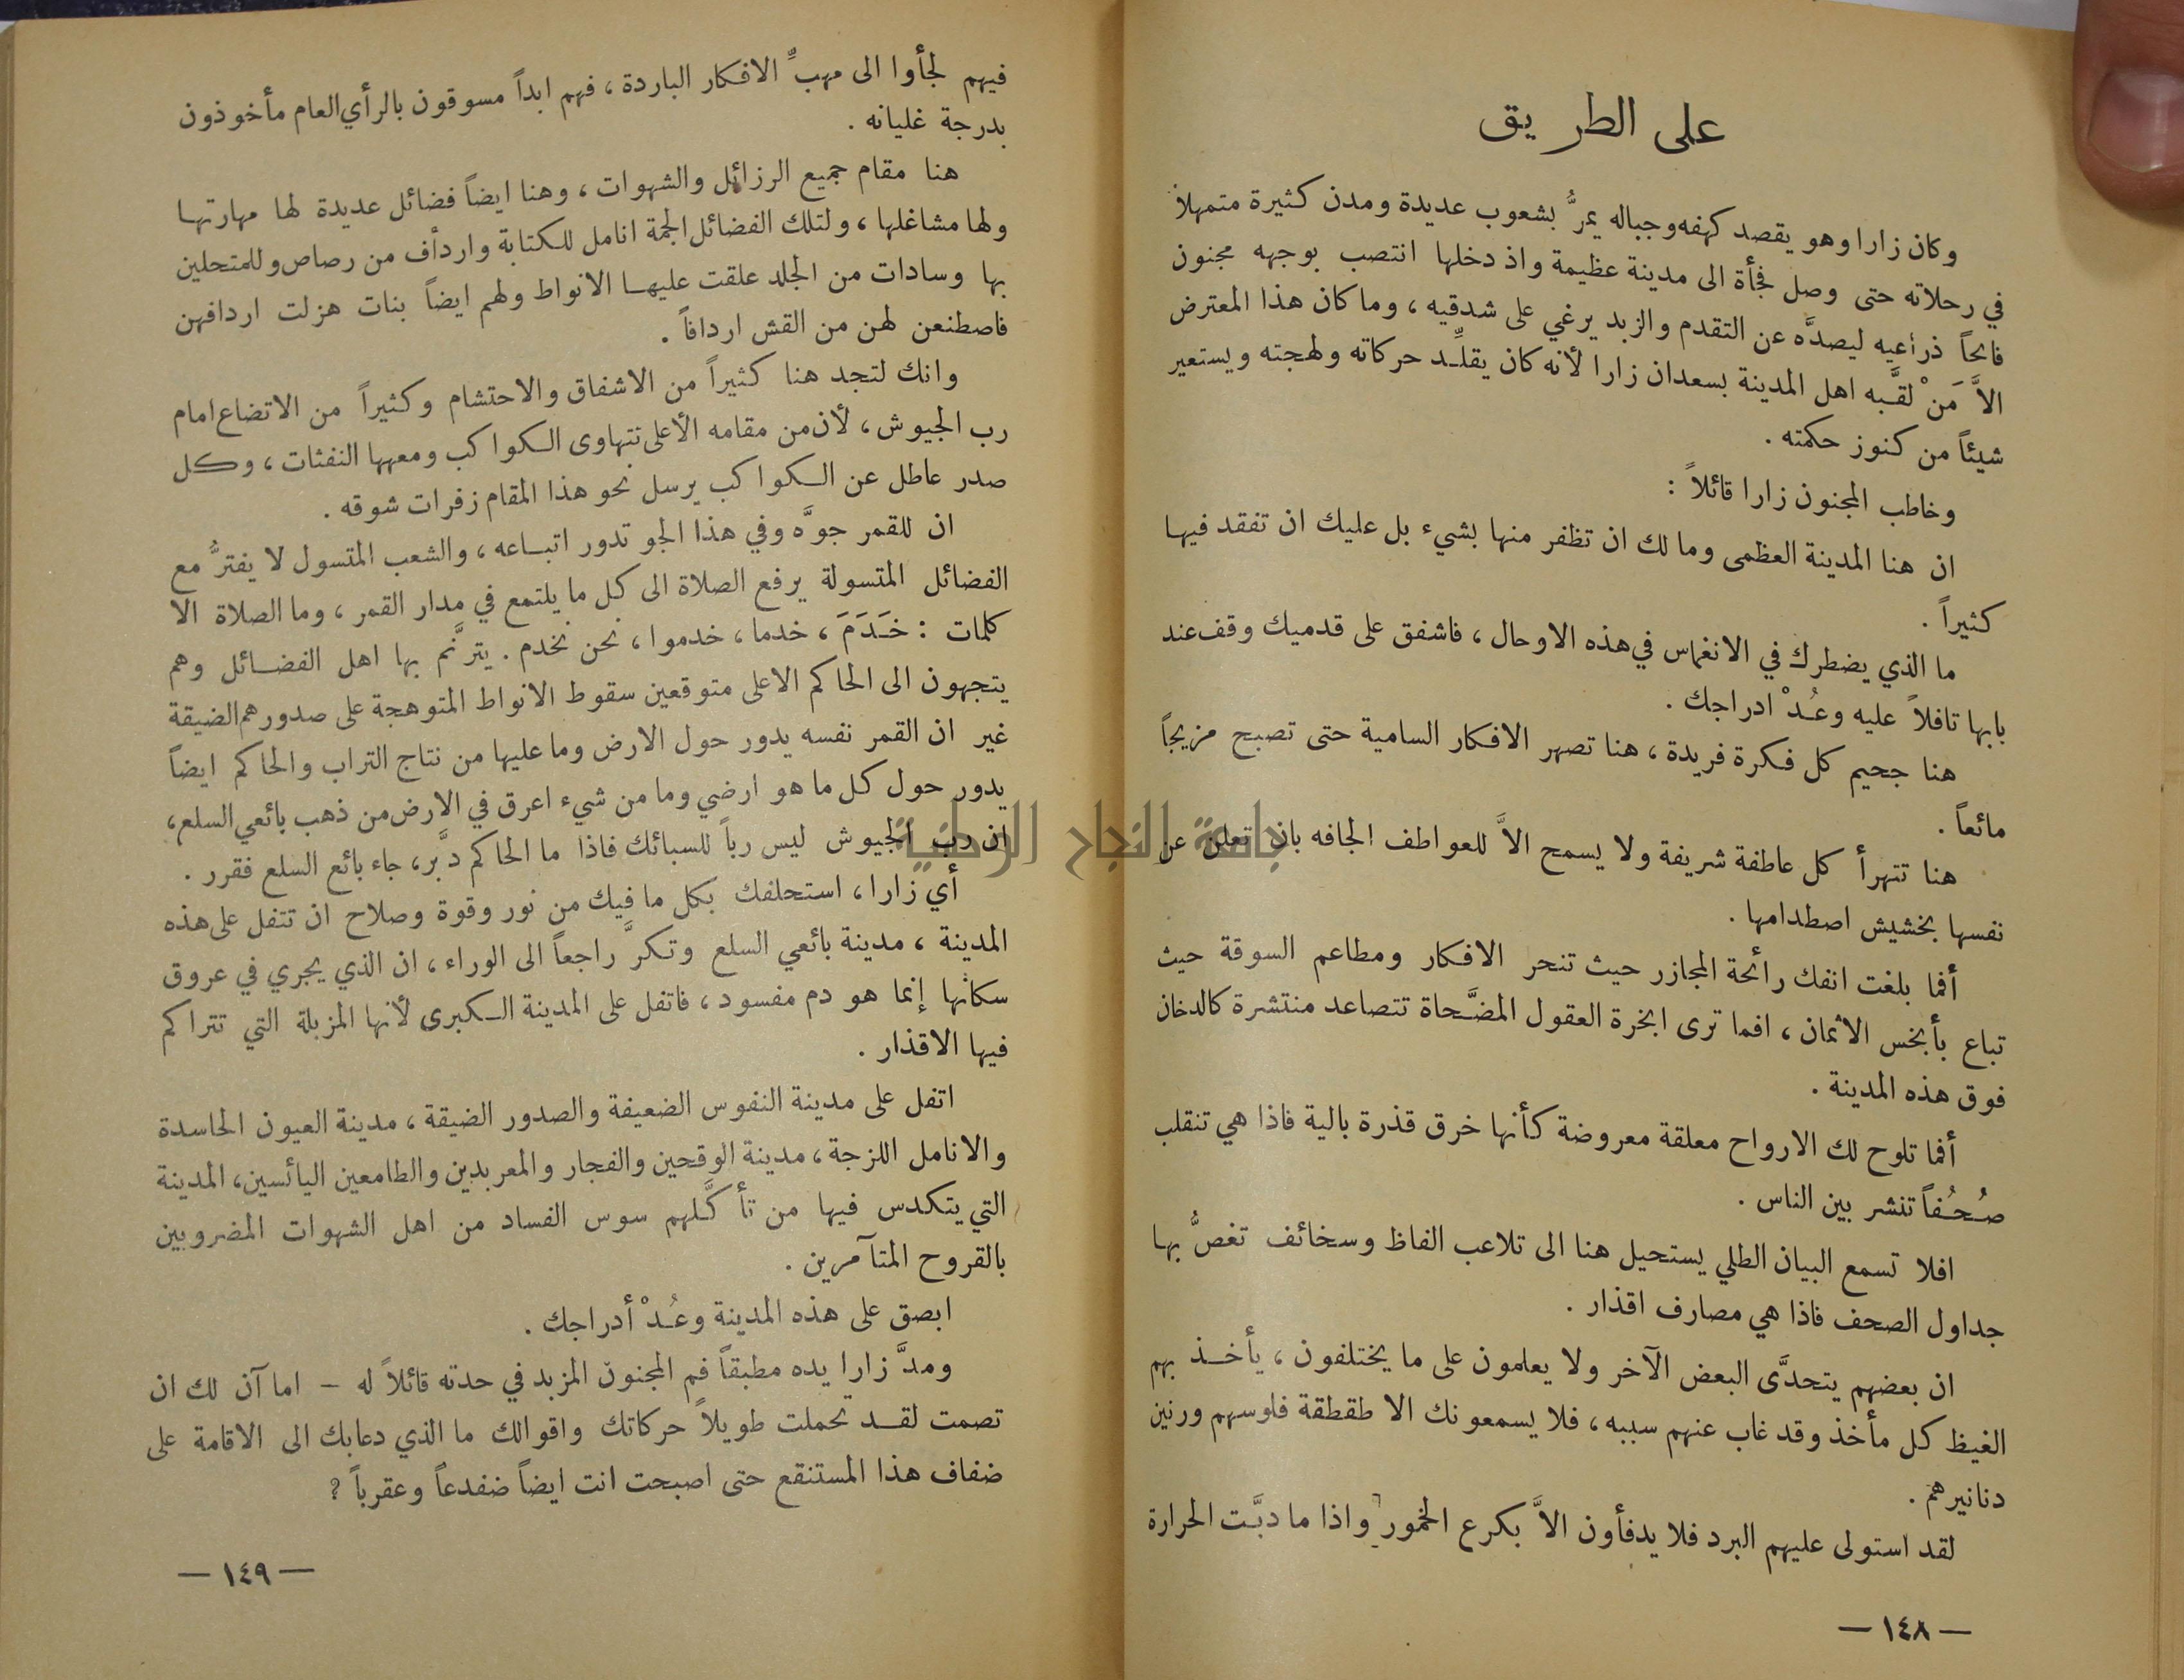 على الطريق
وكان زارا وهو يقصد كهفه وجباله يمرُّ بشعوب عديدة ومدن كثيرة متمهلاً
في رحلاته حتى وصل فجأة الى مدينة عظيمة واذ دخلها انتصب بوجهه مجنون
فاتحاً ذراعيه ليصدَّه عن التقدم والزبد يرغي على شدقيه ، وما كان هذا المعترض
الاَّ مَنْ لقَّبه اهل المدينة بسعدان زارا لأنه كان يقلِّد حركاته ولهجته ويستعير
شيئاً من كنوز حكمته .
وخاطب المجنون زارا قائلاً :
ان هنا المدينة العظمى وما لك ان تظفر منها بشيء بل عليك ان تفقد فيها
كثيراً .
ما الذي يضطرك في الانغماس في هذه الاوحال ، فاشفق على قدميك وقف عند
بابها تافلاً عليه وعُدْ ادراجك .
هنا جحيم كل فكرة فريدة ، هنا تصهر الافكار السامية حتى تصبح مزيجاً
مائعاً .
هنا تتهرأ كل عاطفة شريفة ولا يسمح الاَّ للعواطف الجافه بان تعلن عن
نفسها بخشيش اصطدامها .
أفما بلغت انفك رائحة المجازر حيث تنحر الافكار ومطاعم السوقة حيث
تباع بأبخس الاثمان ، افما ترى ابخرة العقول المضَّحاة تتصاعد منتشرة كالدخان
فوق هذه المدينة .
أفما تلوح لك الارواح معلقة معروضة كأنها خرق قذرة بالية فاذا هي تنقلب
صُحُفاً تنشر بين الناس .
افلا تسمع البيان الطلي يستحيل هنا الى تلاعب الفاظ وسخائف تغصُّ بها
جداول الصحف فاذا هي مصارف اقذار .
ان بعضهم يتحدَّى البعض الآخر ولا يعلمون على ما يختلفون ، يأخذ بهم
الغيظ كل مأخذ وقد غاب عنهم سببه ، فلا يسمعونك الا طقطقة فلوسهم ورنين
دنانيرهم .
لقد استولى عليهم البرد فلا يدفأون الاَّ بكرع الخمور واذا ما دبَّت الحرارة
— ١٤٨ —
فيهم لجأوا الى مهبِّ الافكار الباردة ، فهم ابداً مسوقون بالرأي العام مأخوذون
بدرجة غليانه .
هنا مقام جميع الرزائل والشهوات ، وهنا ايضاً فضائل عديدة لها مهارتها
ولها مشاغلها ، ولتلك الفضائل الجمة انامل للكتابة واردأف من رصاص وللمتحلين
بها وسادات من الجلد علقت عليها الانواط ولهم ايضاً بنات هزلت اردافهن
فاصطنعن لهن من القش اردافاً .
وانك لتجد هنا كثيراً من الاشفاق والاحتشام وكثيراً من الاتضاع امام
رب الجيوش ، لأن من مقامه الأعلى تتهاوى الكواكب ومعهها النفثات ، وكل
صدر عاطل عن الكواكب يرسل نحو هذا المقام زفرات شوقه .
ان للقمر جوَّه وفي هذا الجو تدور اتباعه ، والشعب المتسول لا يفترُّ مع
الفضائل المتسولة يرفع الصلاة الى كل ما يلتمع في مدار القمر ، وما الصلاة الا
كلمات : خَدَمَ ، خدما ، خدموا ، نحن نخدم . يترنَّم بها اهل الفضائل وهم
يتجهون الى الحاكم الاعلى متوقعين سقوط الانواط المتوهجة على صدورهم الضيقة
غير ان القمر نفسه يدور حول الارض وما عليها من نتاج التراب والحاكم ايضاً
يدور حول كل ما هو ارضي وما من شيء اعرق في الارض من ذهب بائعي السلع ،
ان رب الجيوش ليس رباً للسبائك فاذا ما الحاكم دبَّر ، جاء بائع السلع فقرر .
أي زارا ، استحلفك بكل ما فيك من نور وقوة وصلاح ان تتفل على هذه
المدينة ، مدينة بائعي السلع وتكرَّ راجعاً الى الوراء ، ان الذي يجري في عروق
سكانها إنما هو دم مفسود ، فاتفل على المدينة الكبرى لأنها المزبلة التي تتراكم
فيها الاقذار .
اتفل على مدينة النفوس الضعيفة والصدور الضيقة ، مدينة العيون الحاسدة
والانامل اللزجة ، مدينة الوقحين والفجار والمعربدين والطامعين اليائسين ، المدينة
التي يتكدس فيها من تأكَّلهم سوس الفساد من اهل الشهوات المضروبين
بالقروح المتآمرين .
ابصق على هذه المدينة وعُدْ أدراجك .
ومدَّ زارا يده مطبقاً فم المجنون المزبد في حدته قائلاً له – اما آن لك ان
تصمت لقد تحملت طويلاً حركاتك واقوالك ما الذي دعابك الى الاقامة على
ضفاف هذا المستنقع حتى اصبحت انت ايضاً ضفدعاً وعقرباً ؟
— ١٤٩ —
جامعة النجاح الوطنية